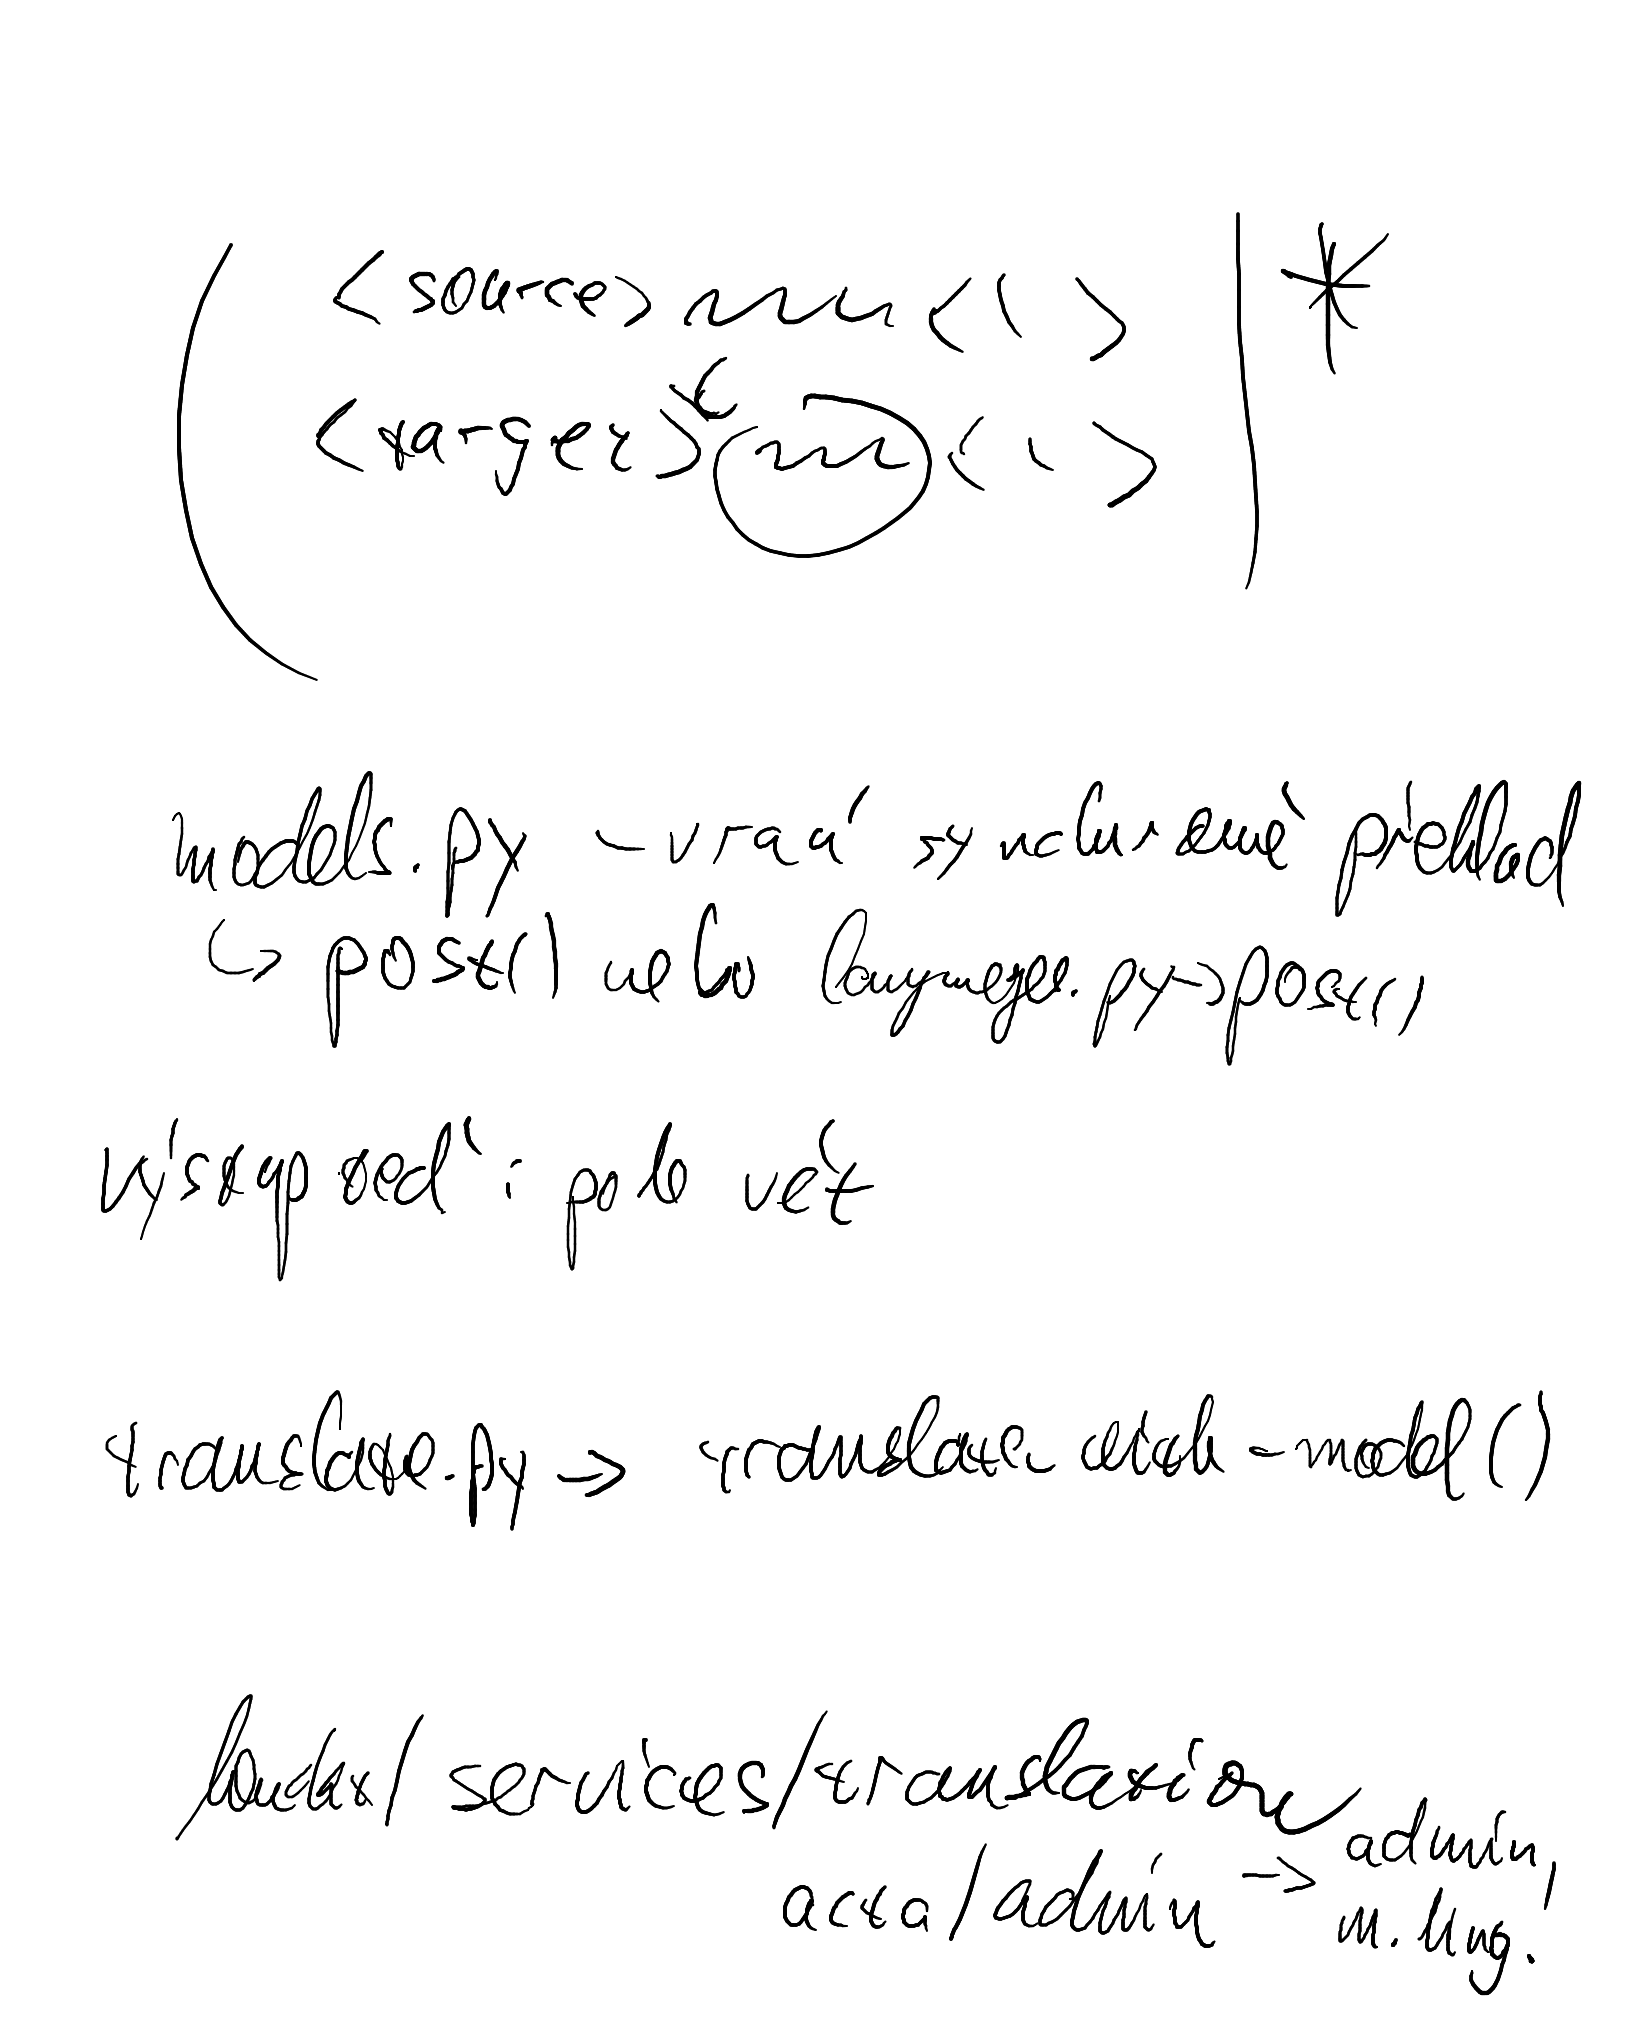 <source> <\ >
<target> <\ >
*
models.py - vrací synchronně překlad
↳ post() nebo languages.py → post()
výstup teď: pole vět
translate.py → translate_with_model()
/services/translation
acta/admin → admin,
m. Ung.